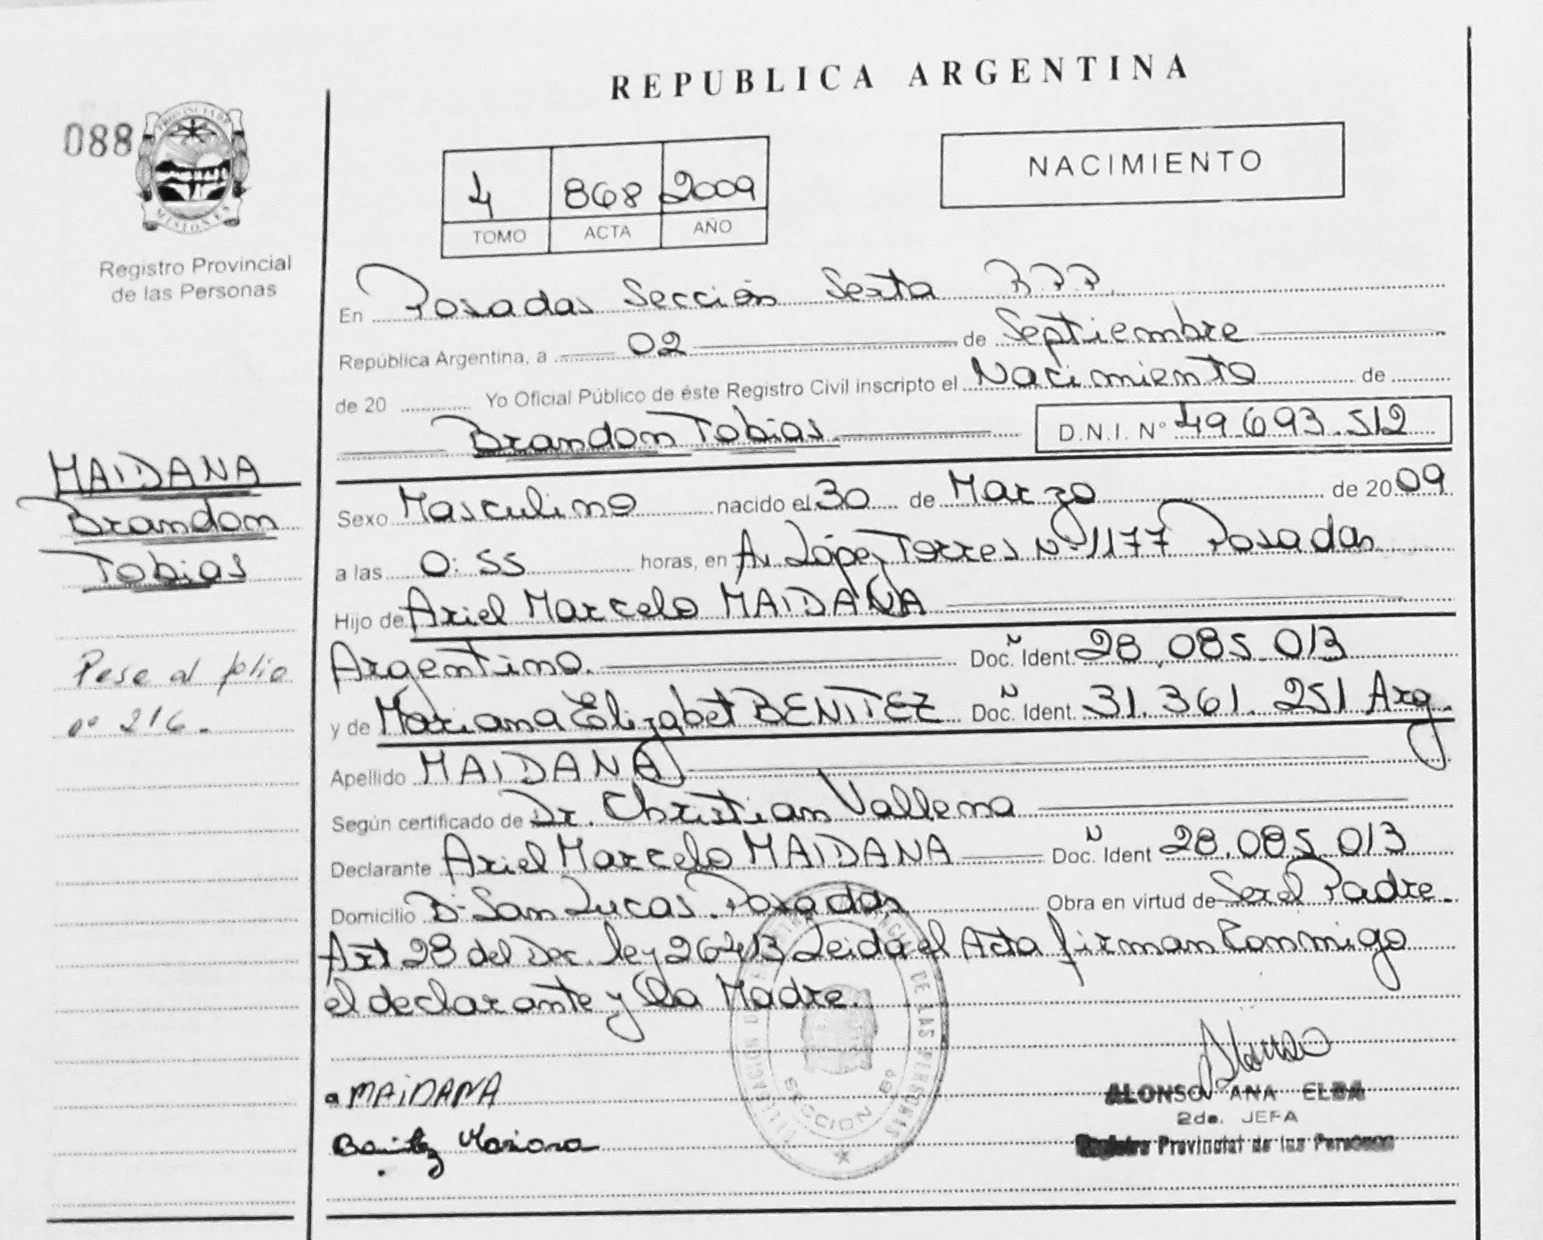 REPUBLICA ARGENTINA
088
PROVINCIA DE
MISIONES
Registro Provincial
de las Personas
4 868 2009
TOMO ACTA AÑO
NACIMIENTO
En Posadas Sección Sexta R.P.P.
República Argentina, a 02 de Septiembre
de 20 Yo Oficial Público de éste Registro Civil inscripto el Nacimiento de
Brandon Tobias D.N.I. Nº 49.693.512
MAIDANA
Brandon
Tobias
Pase al folio
nº 216.
Sexo Masculino nacido el 30 de Marzo de 2009
a las 0:55 horas, en Av. López Torres Nº 1177 Posadas
Hijo de Ariel Marcelo MAIDANA
Argentino. Doc. Ident. 28.085.013
y de Mariana Elizabet BENITEZ Doc. Ident. 31.361.251 Arg.
Apellido MAIDANA
Según certificado de Dr. Christian Vallena
Declarante Ariel Marcelo MAIDANA Doc. Ident 28.085.013
Domicilio Bº San Lucas. Posadas Obra en virtud de Ser el Padre.
Art 28 del Dec. ley 26413 Leida el Acta firman Conmigo
el declarante y la Madre.
MAIDANA
Benitez Mariana
DE LAS PERSONAS
SECCION 6º
Alonso
ALONSO ANA ELBA
2da. JEFA
Registro Provincial de las Personas